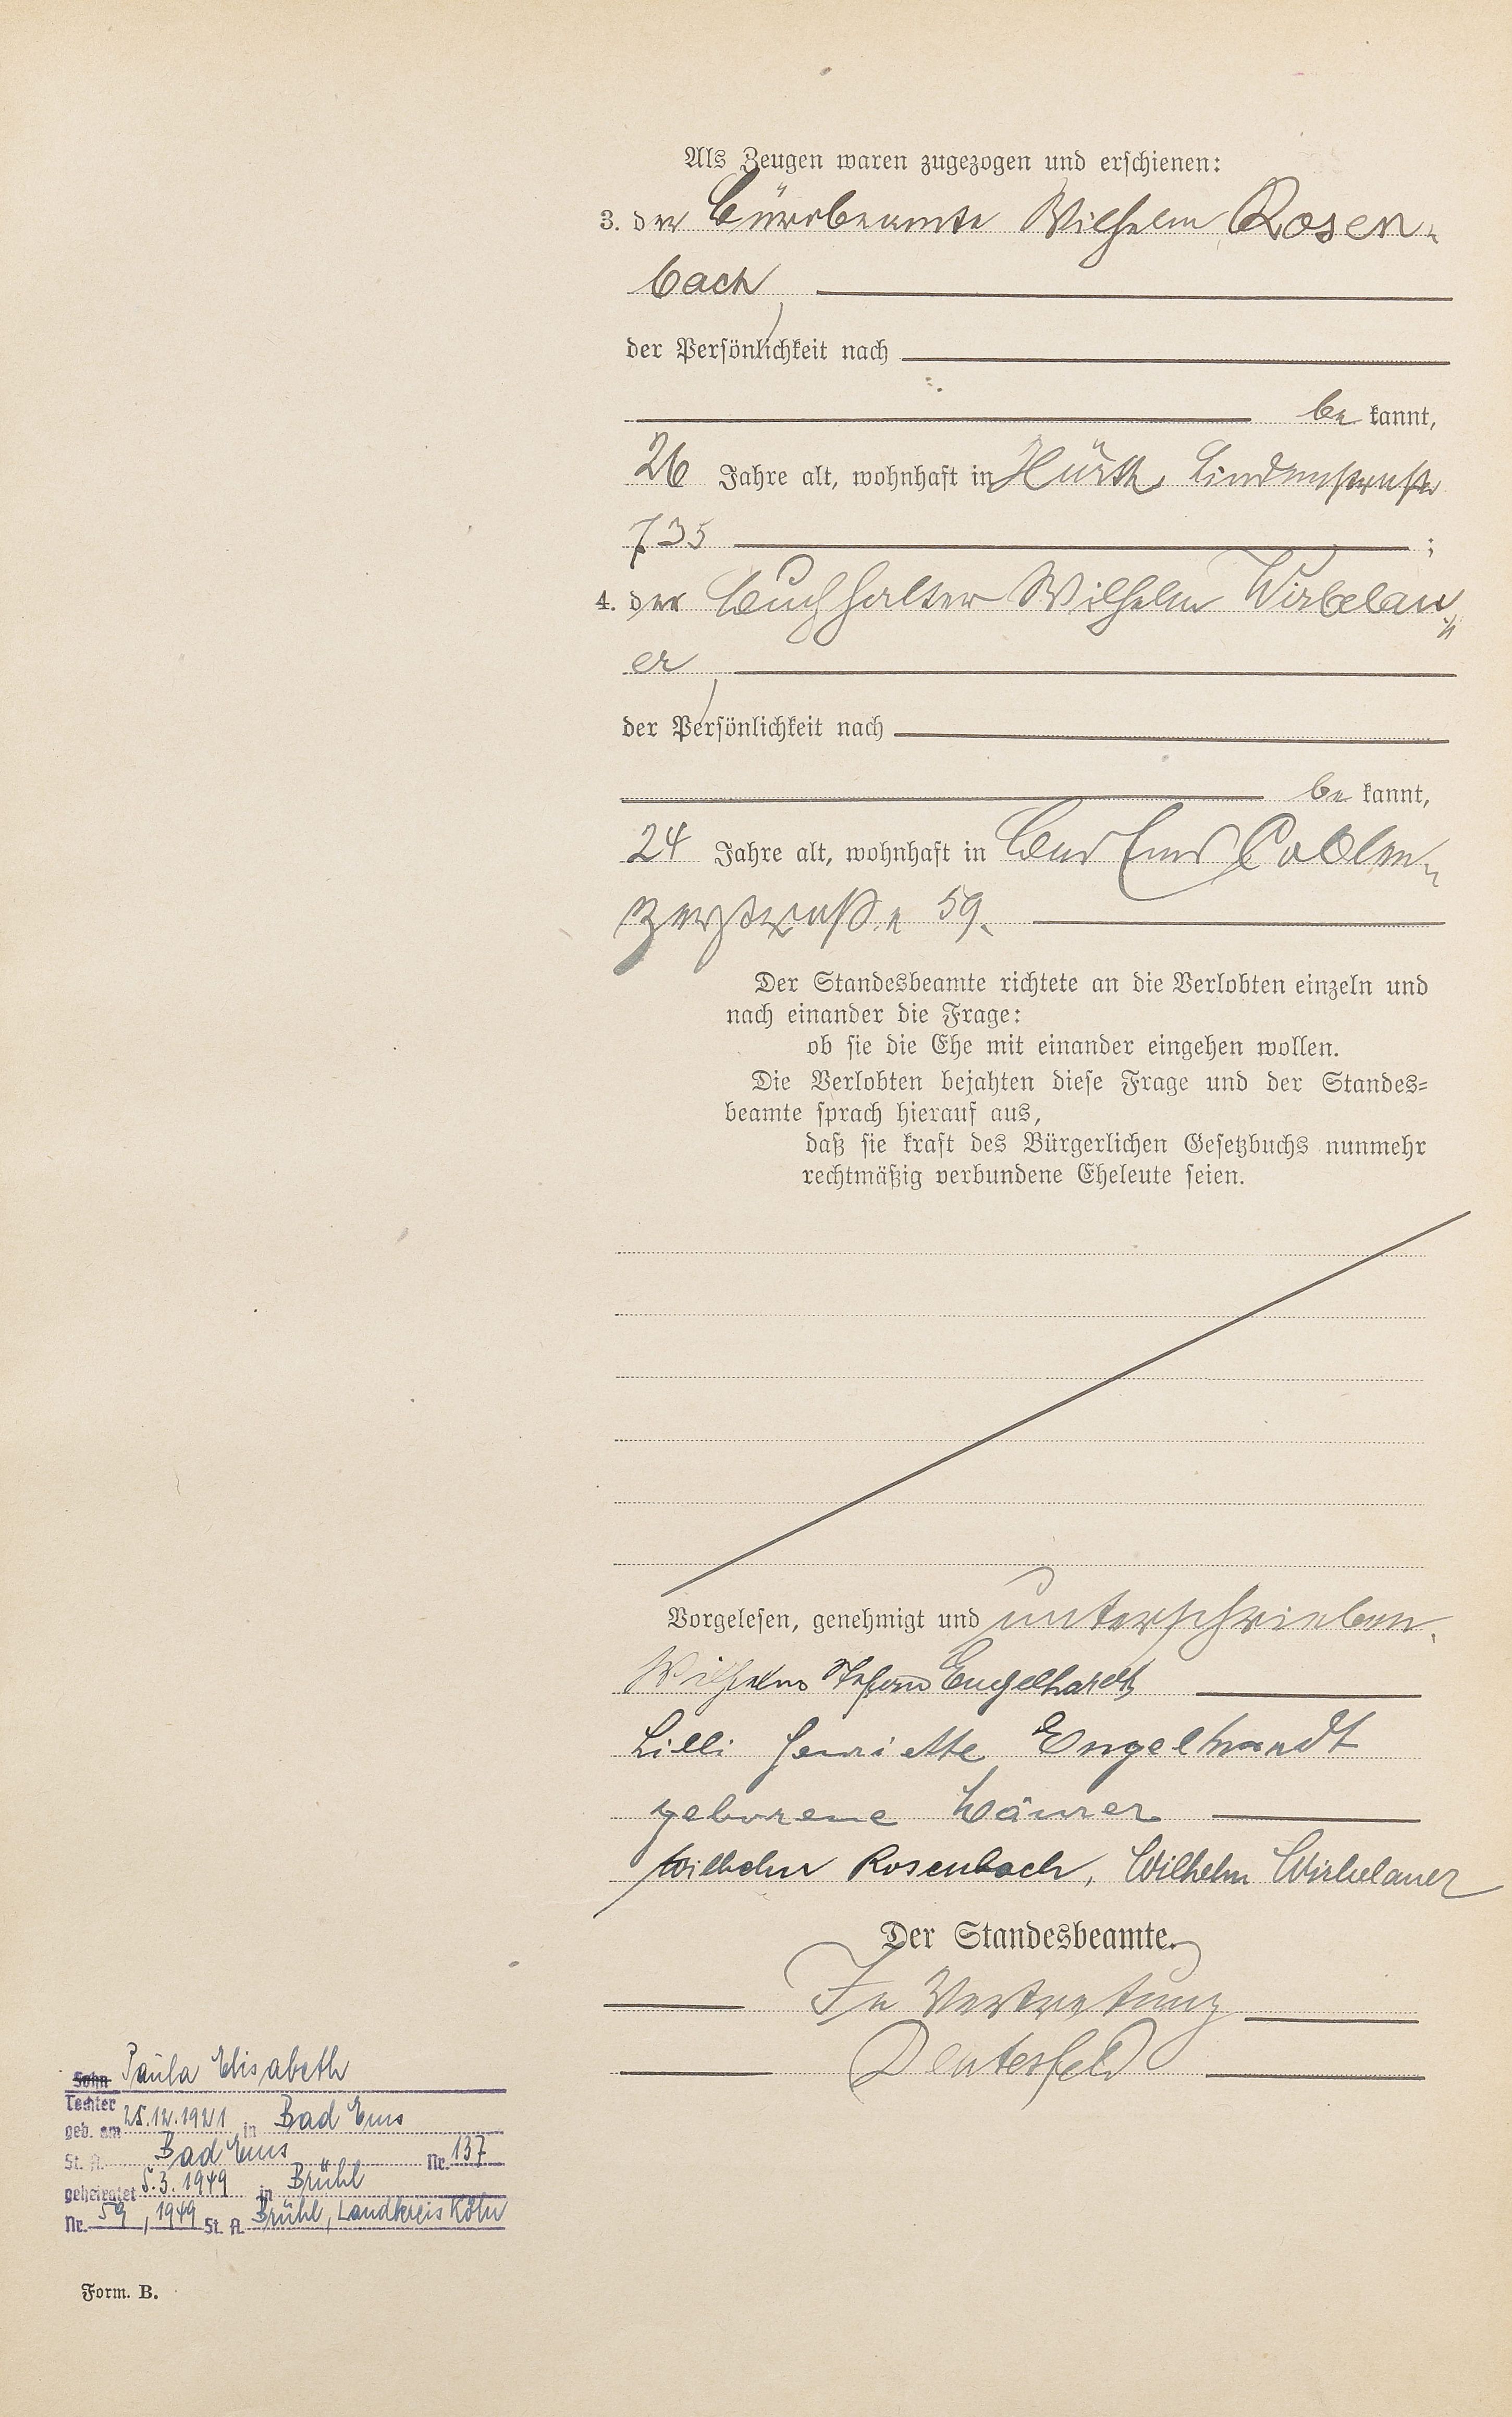 Als Zeugen waren zugezogen und erschienen:
3. der Bürobeamte Wilhelm Rosen-
bach,
der Persönlichkeit nach
be kannt,
26 Jahre alt, wohnhaft in Hürth, Lindenstraße
735 ;
4. der Buchhalter Wilhelm Wirbelau-
er,
der Persönlichkeit nach
be kannt,
24 Jahre alt, wohnhaft in Bad Ems Coblen-
zerstraße 59.
Der Standesbeamte richtete an die Verlobten einzeln und
nach einander die Frage:
ob sie die Ehe mit einander eingehen wollen.
Die Verlobten bejahten diese Frage und der Standes-
beamte sprach hierauf aus,
daß sie kraft des Bürgerlichen Gesetzbuchs nunmehr
rechtmäßig verbundene Eheleute seien.
Vorgelesen, genehmigt und unterschrieben.
Wilhelm Engelhardt
Lilli Henriette Engelhardt
geborene
Wilhelm Rosenbach, Wilhelm Wirbelauer
Der Standesbeamte.
In Vertretung
Sohn Paula Elisabeth
Tochter
geb. am 25.12.1921 in Bad Ems
St. A. Bad Ems Nr. 137
geheiratet 5.3.1949 in Brühl
Nr. 59 / 1949 St. A. Brühl, Landkreis Köln
Form. B.